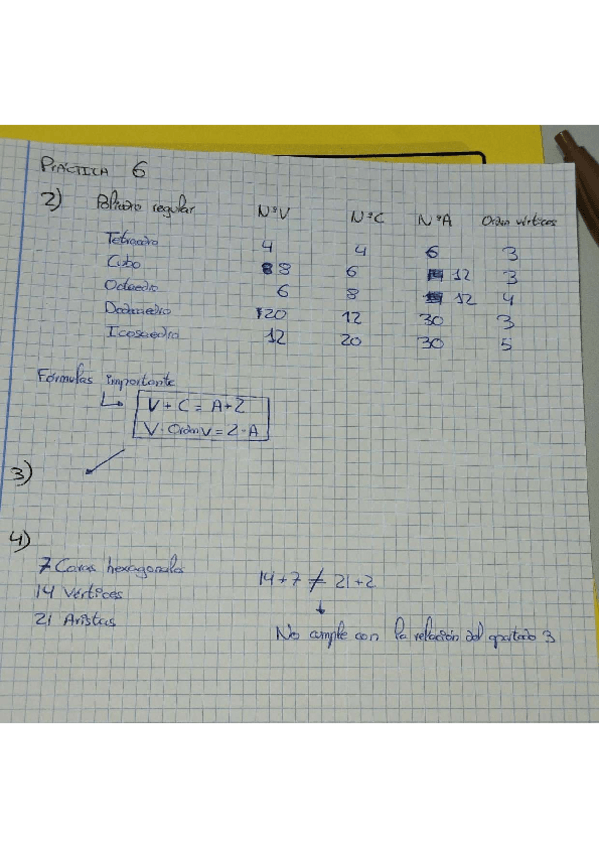 PRÁCTICA 6
2) Poliedro regular NºV NºC NºA Orden vértices
Tetraedro 4 4 6 3
Cubo 8 6 12 3
Octaedro 6 8 12 4
Dodecaedro 20 12 30 3
Icosaedro 12 20 30 5
Fórmulas importante
V + C = A + 2
V · Orden V = 2 · A
3)
4)
7 Caras hexagonales
14 Vértices 14 + 7 ≠ 21 + 2
21 Aristas
No cumple con la relación del apartado 3